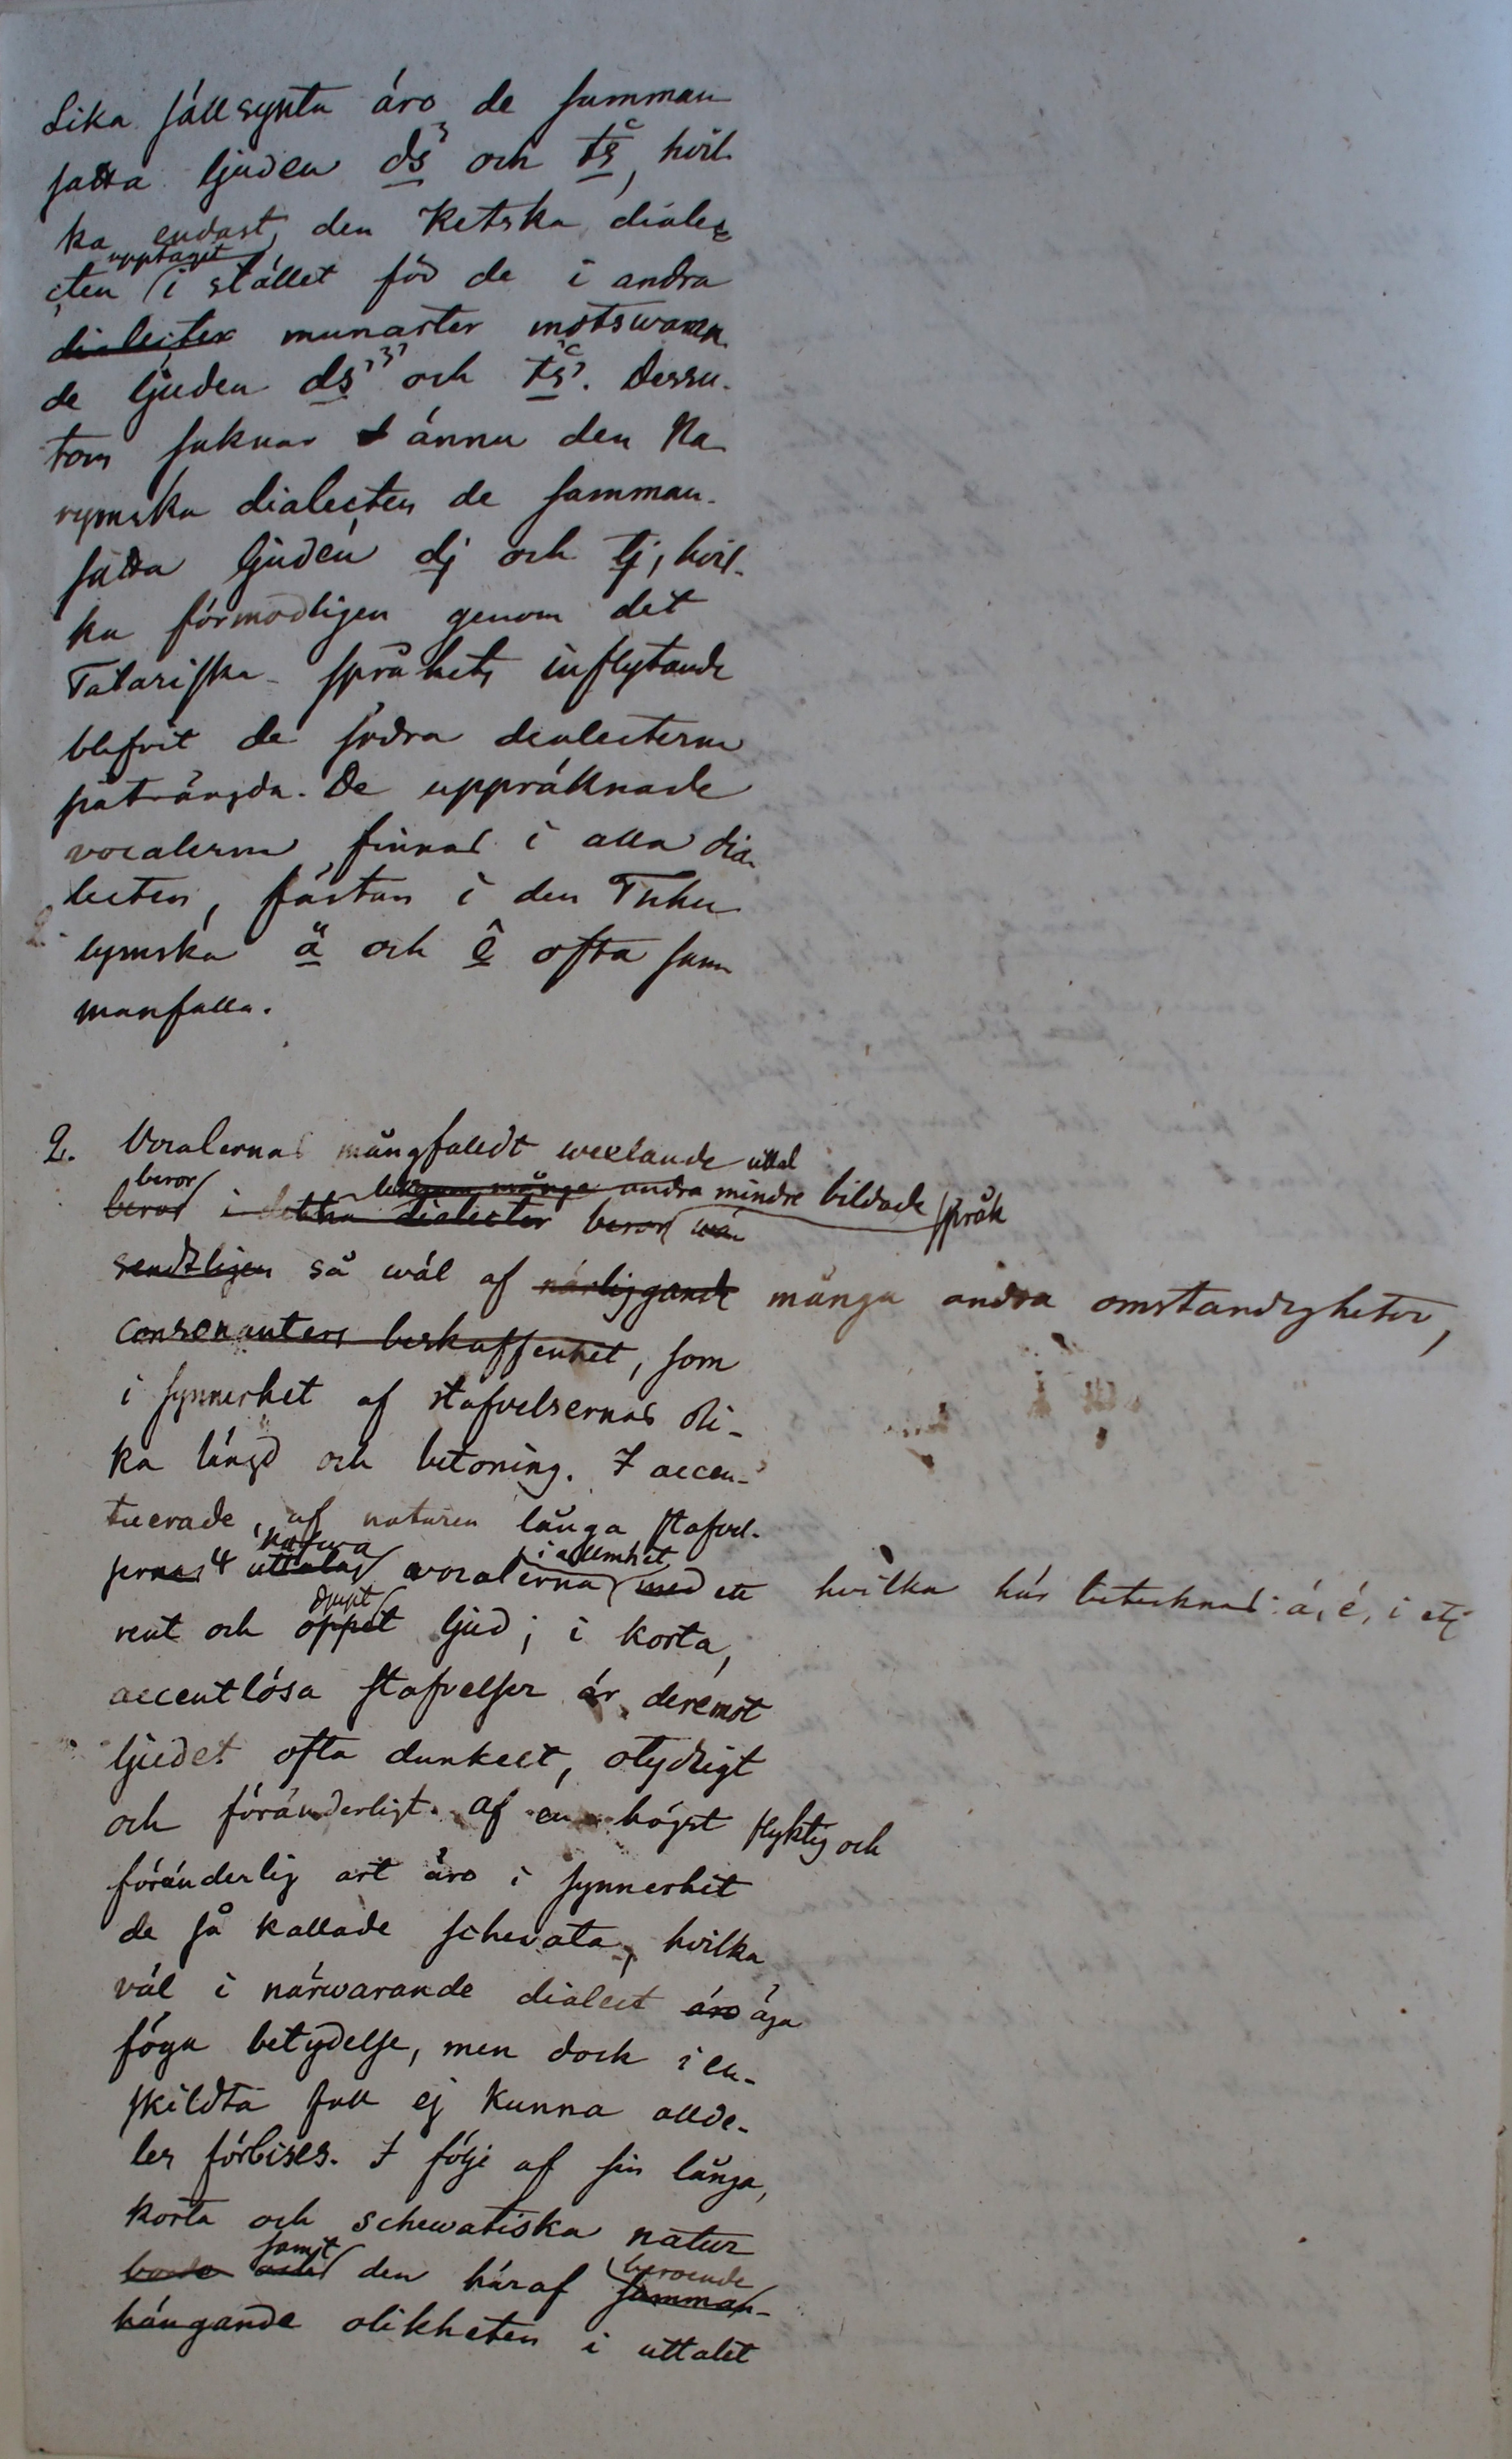 Lika sällsynta äro de samman
satta ljuden ds och ts, hvil
ka endast den Ketska diale
upptagit
cten i stället för de i andra
dialecter munarter motswaran
de ljuden ds och ts. Dessu-
tom saknar ännu den Na
rymska dialecten de samman-
satta ljuden dj och tj, hvil-
ka förmodligen genom det
Tatariska språkets inflytande
blifvit de södra dialecterna
påträngda. De uppräknade
vocalerna finnas i alla dia
lecter, fästän i den Tschu
lymska ä och ê ofta sam
manfalla.
2. Vocalernas mångfaldt wexlande uttal
beror många andra mindre bildade språk
beror i dialecter beror wä
sendtligen så wäl af närliggande många andra omständigheter,
consonanters beskaffenhet, som
i synnerhet af stafvelsernas oli-
ka längd och betoning. I accen-
tuerade, af naturen långa stafvel-
i allmhet
sernas uttalas vocalerna med ett hvilka här betecknas: á, é, í etc
djupt
rent och öppet ljud; i korta,
accentlösa stafvelser är deremot
ljudet ofta dunkelt, otydligt
och föränderligt. Af en högst flyktig och
föränderlig art äro i synnerhet
de så kallade schewata, hvilka
väl i närwarande dialect äro äga
föga betydelse, men dock i en-
skildta fall ej kunna allde-
les förbises. I följe af sin långa,
korta och schewatiska natur
samt beroende
den häraf samman-
hängande olikheten i uttalet